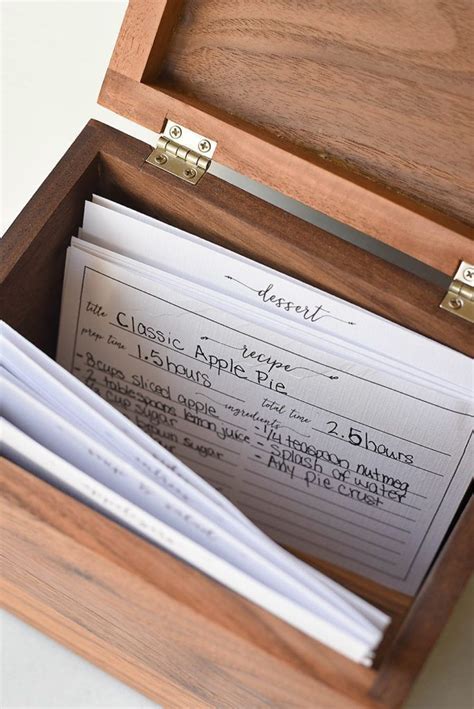 dessert
recipe
title Classic Apple Pie
prep time 1.5hours total time 2.5hours
ingredients
- 8 cups sliced apple
tablespoons lemon juice
cup sugar
sugar
- 1/4 teaspoon nutmeg
- Splash of water
- Any Pie Crust